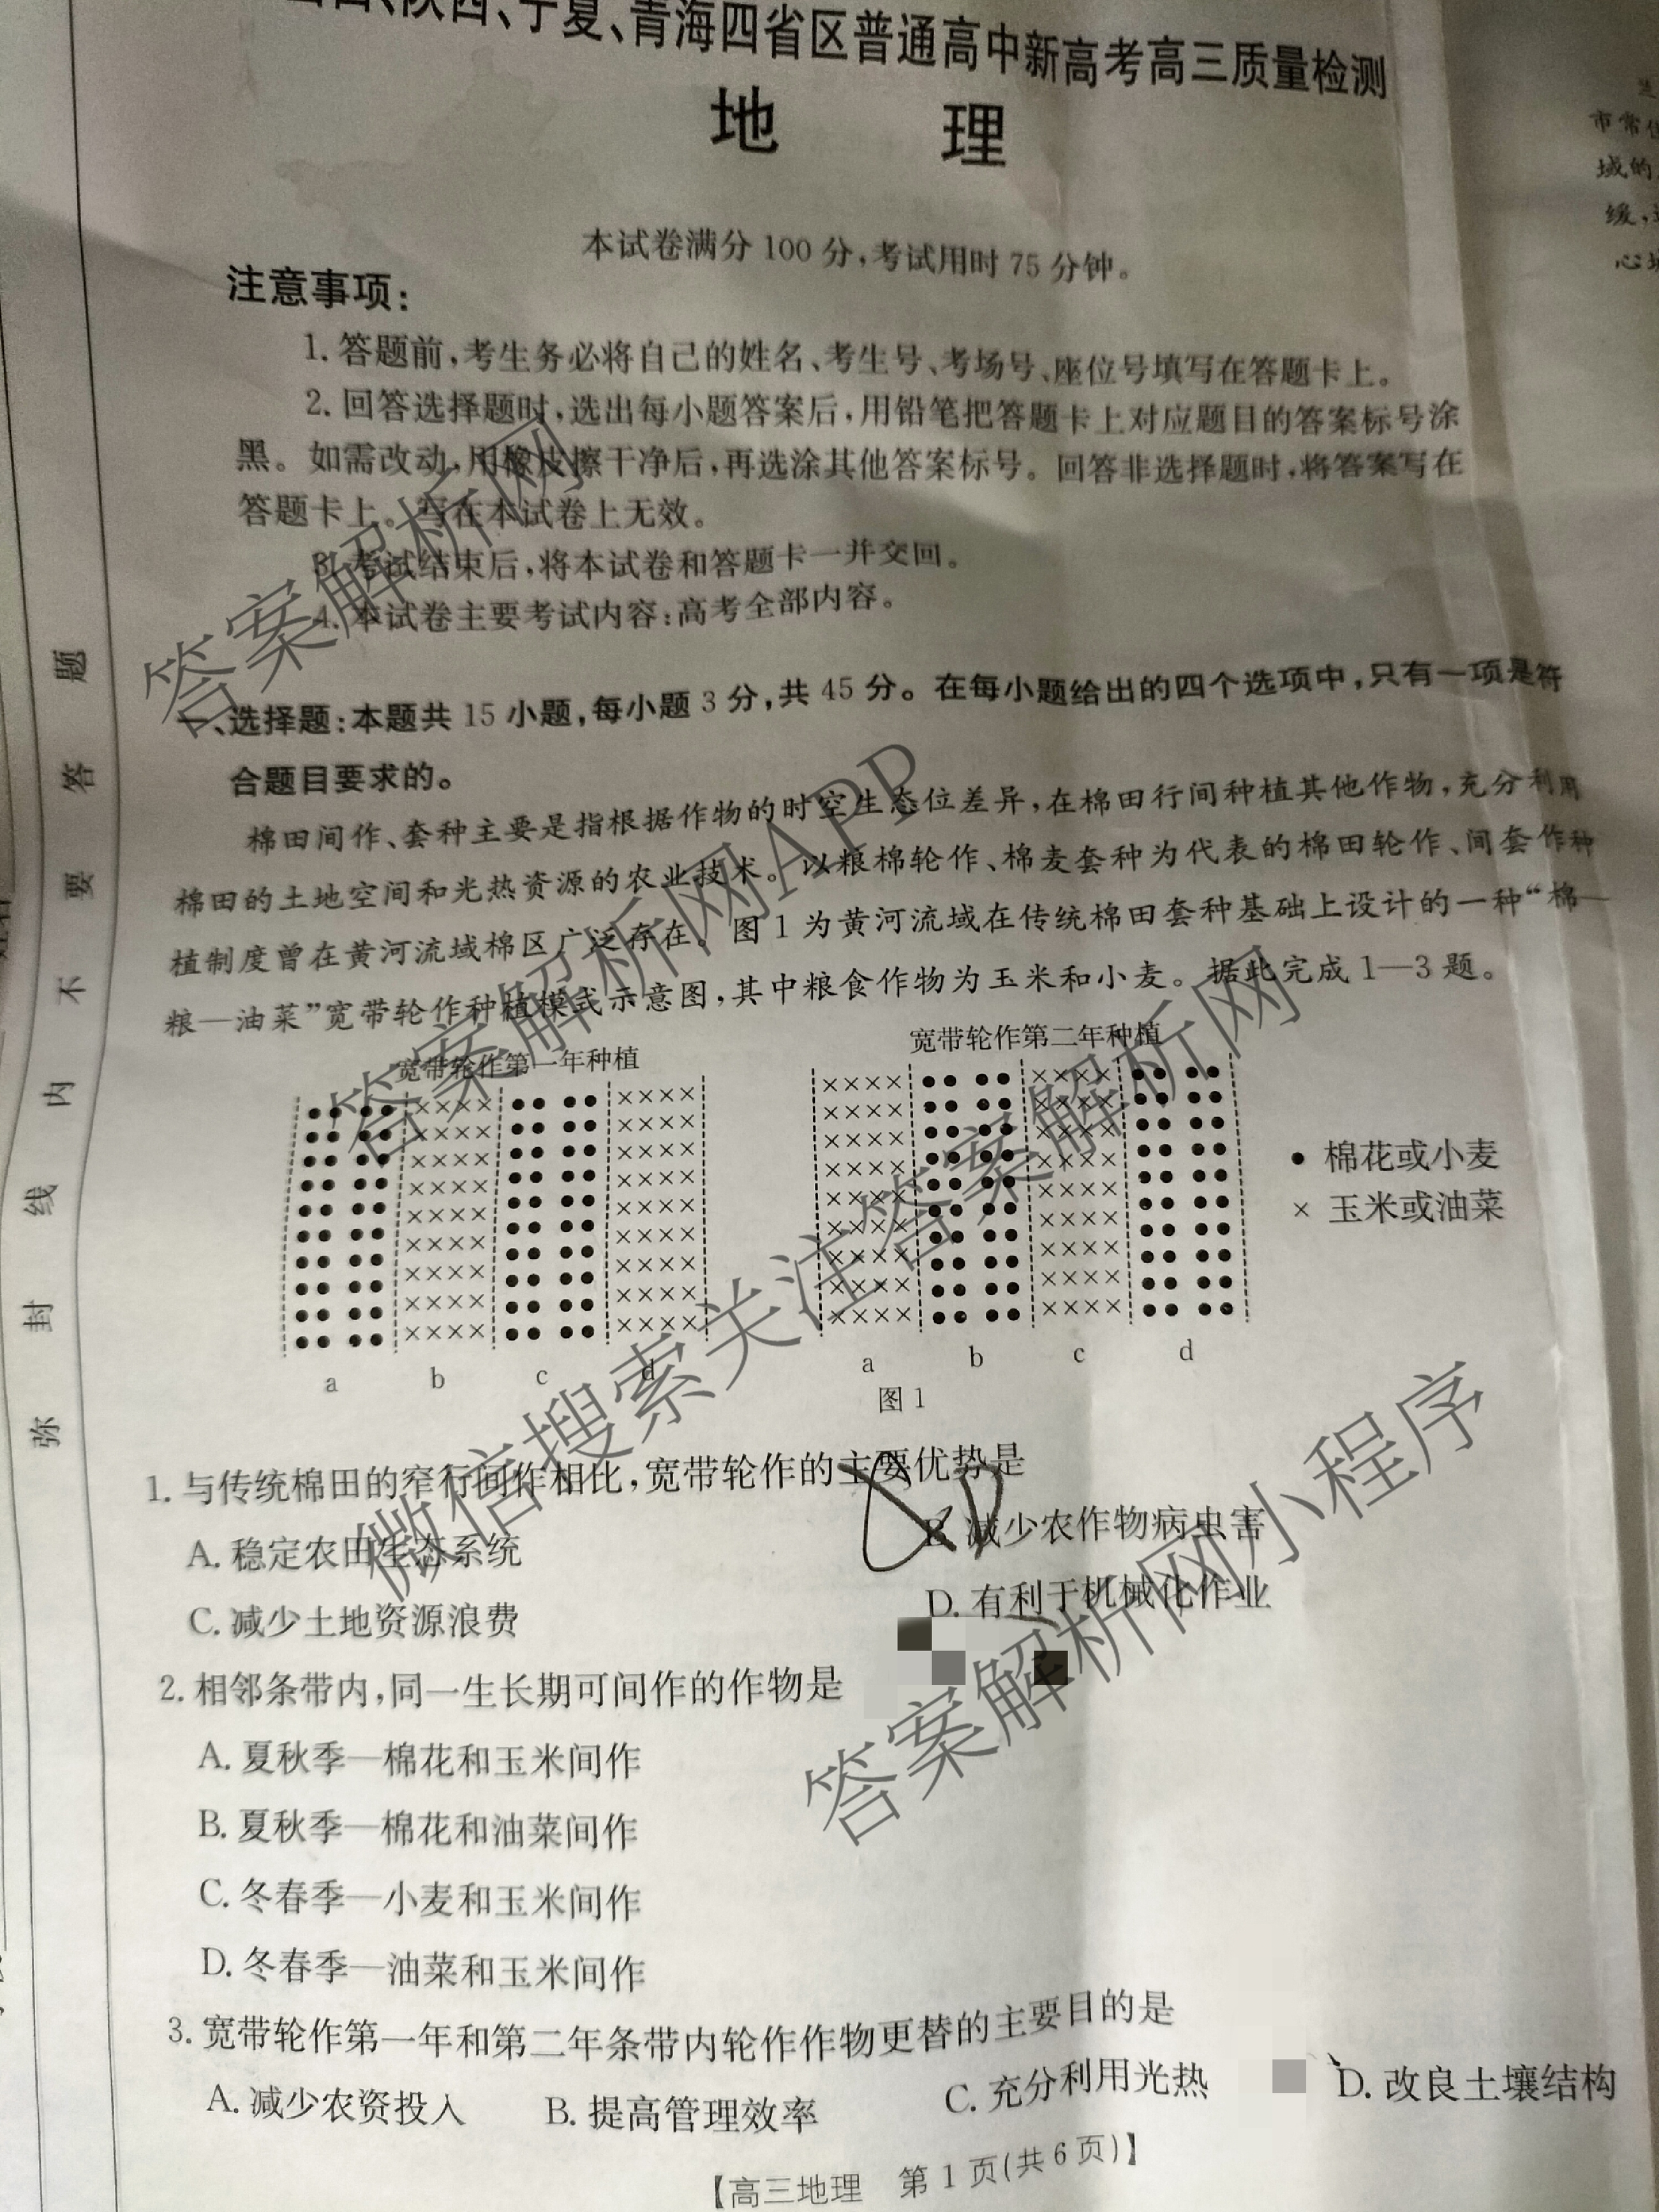 、陕西、宁夏、青海四省区普通高中新高考高三质量检测
地 理
本试卷满分 100 分,考试用时 75 分钟。
注意事项:
1. 答题前,考生务必将自己的姓名、考生号、考场号、座位号填写在答题卡上。
2. 回答选择题时,选出每小题答案后,用铅笔把答题卡上对应题目的答案标号涂
黑。如需改动,用橡皮擦干净后,再选涂其他答案标号。回答非选择题时,将答案写在
答题卡上。写在本试卷上无效。
3. 考试结束后,将本试卷和答题卡一并交回。
4. 本试卷主要考试内容:高考全部内容。
一、选择题:本题共 15 小题,每小题 3 分,共 45 分。在每小题给出的四个选项中,只有一项是符
合题目要求的。
棉田间作、套种主要是指根据作物的时空生态位差异,在棉田行间种植其他作物,充分利用
棉田的土地空间和光热资源的农业技术。以粮棉轮作、棉麦套种为代表的棉田轮作、间套作种
植制度曾在黄河流域棉区广泛存在。图 1 为黄河流域在传统棉田套种基础上设计的一种“棉—
粮—油菜”宽带轮作种植模式示意图,其中粮食作物为玉米和小麦。据此完成 1—3 题。
宽带轮作第一年种植
宽带轮作第二年种植
• 棉花或小麦
× 玉米或油菜
a b c d
a b c d
图 1
1. 与传统棉田的窄行间作相比,宽带轮作的主要优势是
A. 稳定农田生态系统
B. 减少农作物病虫害
C. 减少土地资源浪费
D. 有利于机械化作业
2. 相邻条带内,同一生长期可间作的作物是
A. 夏秋季—棉花和玉米间作
B. 夏秋季—棉花和油菜间作
C. 冬春季—小麦和玉米间作
D. 冬春季—油菜和玉米间作
3. 宽带轮作第一年和第二年条带内轮作作物更替的主要目的是
A. 减少农资投入 B. 提高管理效率 C. 充分利用光热 D. 改良土壤结构
【高三地理 第 1 页(共 6 页)】
弥 封 线 内 不 要 答 题
市常
域的
缓,
心
答案解析网
答案解析网APP
微信搜索关注答案解析网
答案解析网小程序